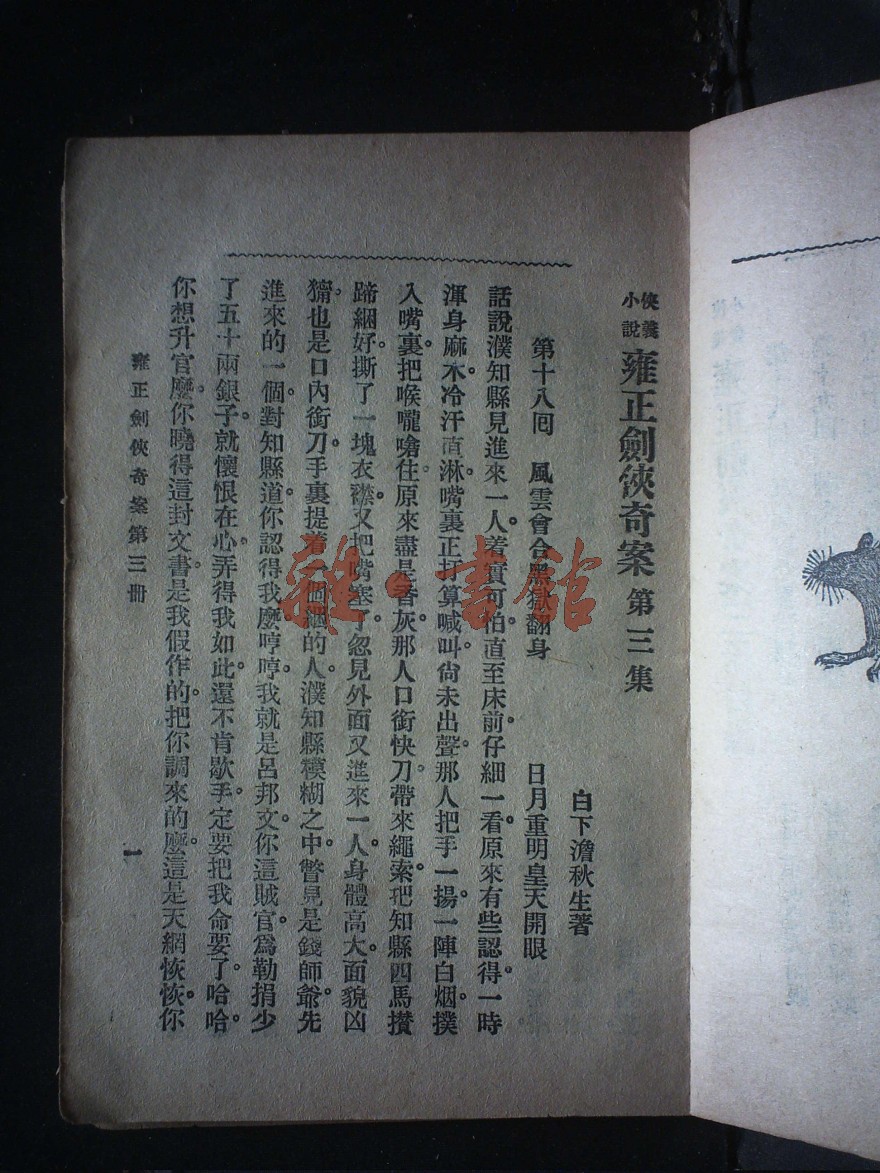 俠義小說 雍正劍俠奇案 第三集
白下澹秋生著
第十八囘 風雲會合黑獄翻身 日月重明皇天開眼
話說濮知縣見進來一人。着實可怕。直至床前。仔細一看。原來有些認得。一時
渾身麻木。冷汗直淋。嘴裏正打算喊叫。尙未出聲。那人把手一揚。一陣白烟。撲
入嘴裏。把喉嚨嗆住。原來盡是香灰。那人口銜快刀。帶來繩索。把知縣四馬攢
蹄綑好。撕了一塊衣襟。又把嘴塞了。忽見外面又進來一人。身體高大。面貌凶
獰。也是口內銜刀。手裏提着一個綑的人。濮知縣模糊之中。瞥見是錢師爺。先
進來的一個。對知縣道。你認得我麼。哼哼。我就是呂邦文。你這賊官。爲勒捐少
了五十兩銀子。就懷恨在心。弄得我如此。還不肯歇手。定要把我命要了。哈哈。
你想升官麼。你曉得這封文書。是我假作的。把你調來的麼。這是天網恢恢。你
雍正劍俠奇案第三冊
一
雜·書館